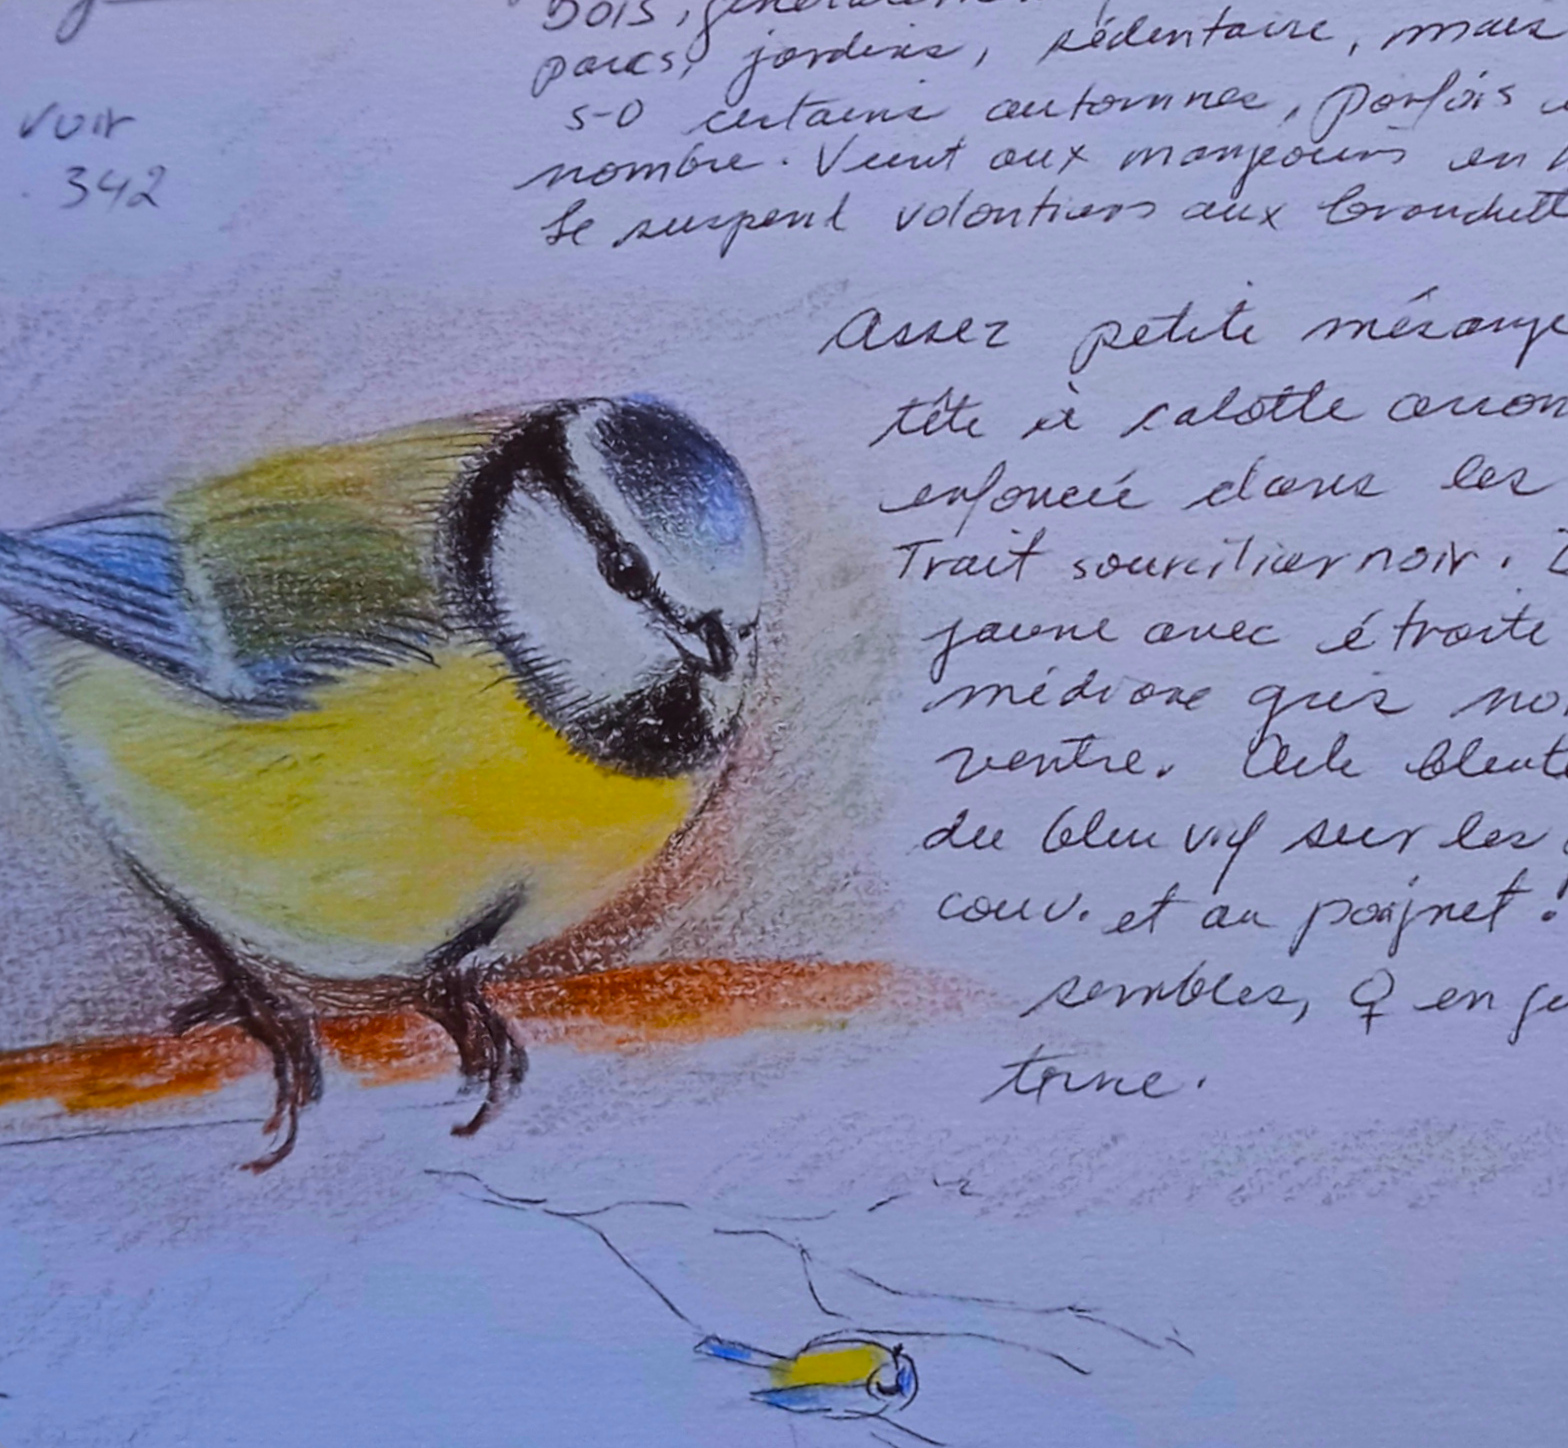 Bois, généralement
parcs, jardins, sédentaire, mais
voir
S-O certains automnes, parfois
. 342
nombre. Vient aux mangeoires en
Se suspend volontiers aux brindill
Assez petite mésange
tête à calotte arron
enfoncée dans les
Trait sourcilier noir.
jaune avec étroite
médiane gris no
ventre. Aile bleut
du bleu vif sur les
couv. et au poignet.
sembles, ♀ en gé
terne.